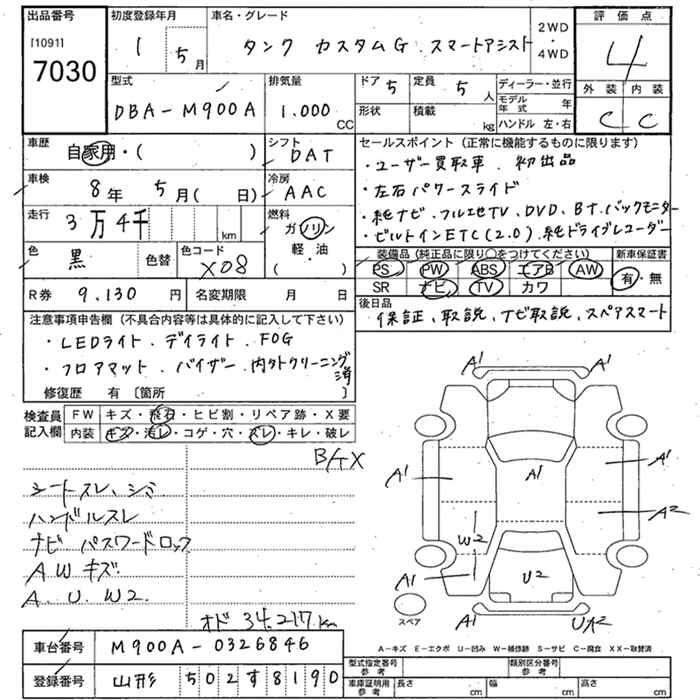 出品番号 初度登録年月 車名・グレード 2WD・4WD 評価点
[1091] 7030 1 5月 タンク カスタムG スマートアシスト 4
型式 排気量 ドア 5 定員 5人 ディーラー・並行 外装 内装
DBA-M900A 1.000 CC 形状 積載 kg モデル年式 年 C C
ハンドル 左・右
車歴 自家用・( ) シフト DAT セールスポイント (正常に機能するものに限ります)
・ユーザー買取車. 初出品
車検 8年 5月( 日) 冷房 AAC ・左右パワースライド
走行 3万4千 km 燃料 ガソリン ・純ナビ.フルセTV、DVD、BT.バックモニター
軽・油 ・ビルトインETC(2.0).純ドライブレコーダー
色 黒 色替 色コード X08 ( ) 装備品 (純正品に限り○をつけてください) 新車保証書
PS PW ABS エアB AW 有・無
SR ナビ TV カワ
R券 9.130 円 名変期限 月 日 後日品
保証、取説、ナビ取説、スペアスマート
注意事項申告欄 (不具合内容等は具体的に記入して下さい)
・LEDライト.デイライト.FOG
・フロアマット.バイザー.内外クリーニング済
修復歴 有 [箇所 ]
検査員記入欄 FW キズ・飛石・ヒビ割・リペア跡・X要
内装 キズ・汚レ・コゲ・穴・スレ・キレ・破レ
シートスレ、シミ
ハンドルスレ
ナビ パスワードロック
AWキズ
A.U.W2.
オド 34.217km
A1 A1
A1 A1 A1
A2
W2
A1 U2
A1
スペア
A-キズ E-エクボ U-凹み W-補修跡 S-サビ C-腐食 XX-取替済
車台番号 M900A-0326846
登録番号 山形 502す8190
型式指定番号 参考 類別区分番号 参考
車庫証明用 参考 長さ cm 幅 cm 高さ cm